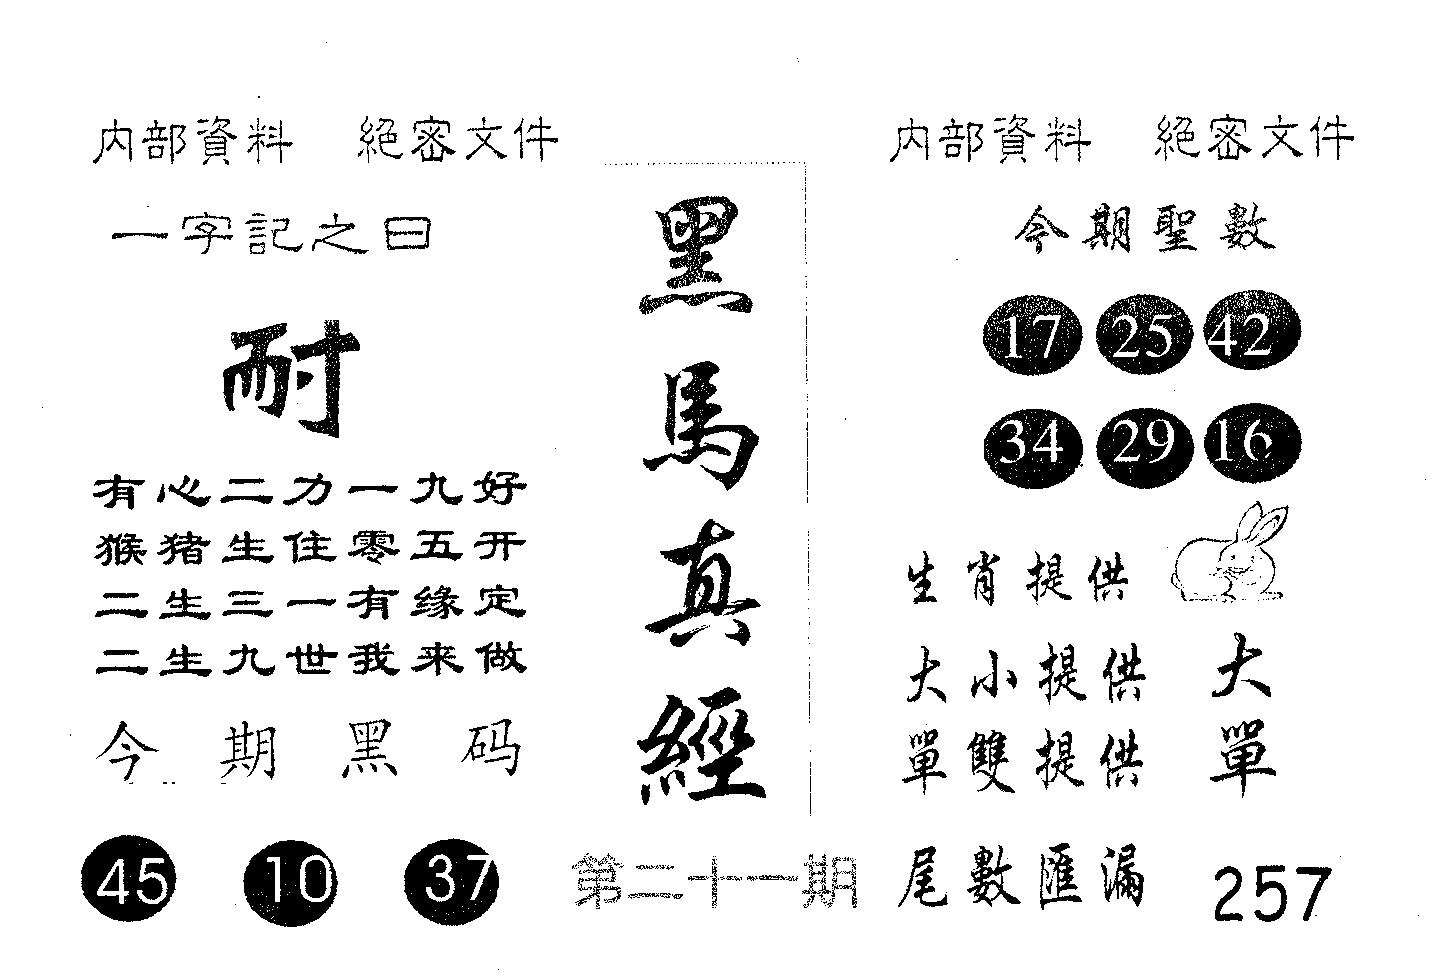 内部資料 絕密文件
一字記之曰
耐
有心二力一九好
猴猪生住零五开
二生三一有缘定
二生九世我来做
今期黑码
45 10 37
黑馬真經
第二十一期
内部資料 絕密文件
今期聖數
17 25 42
34 29 16
生肖提供
大小提供 大
單雙提供 單
尾數匯漏 257